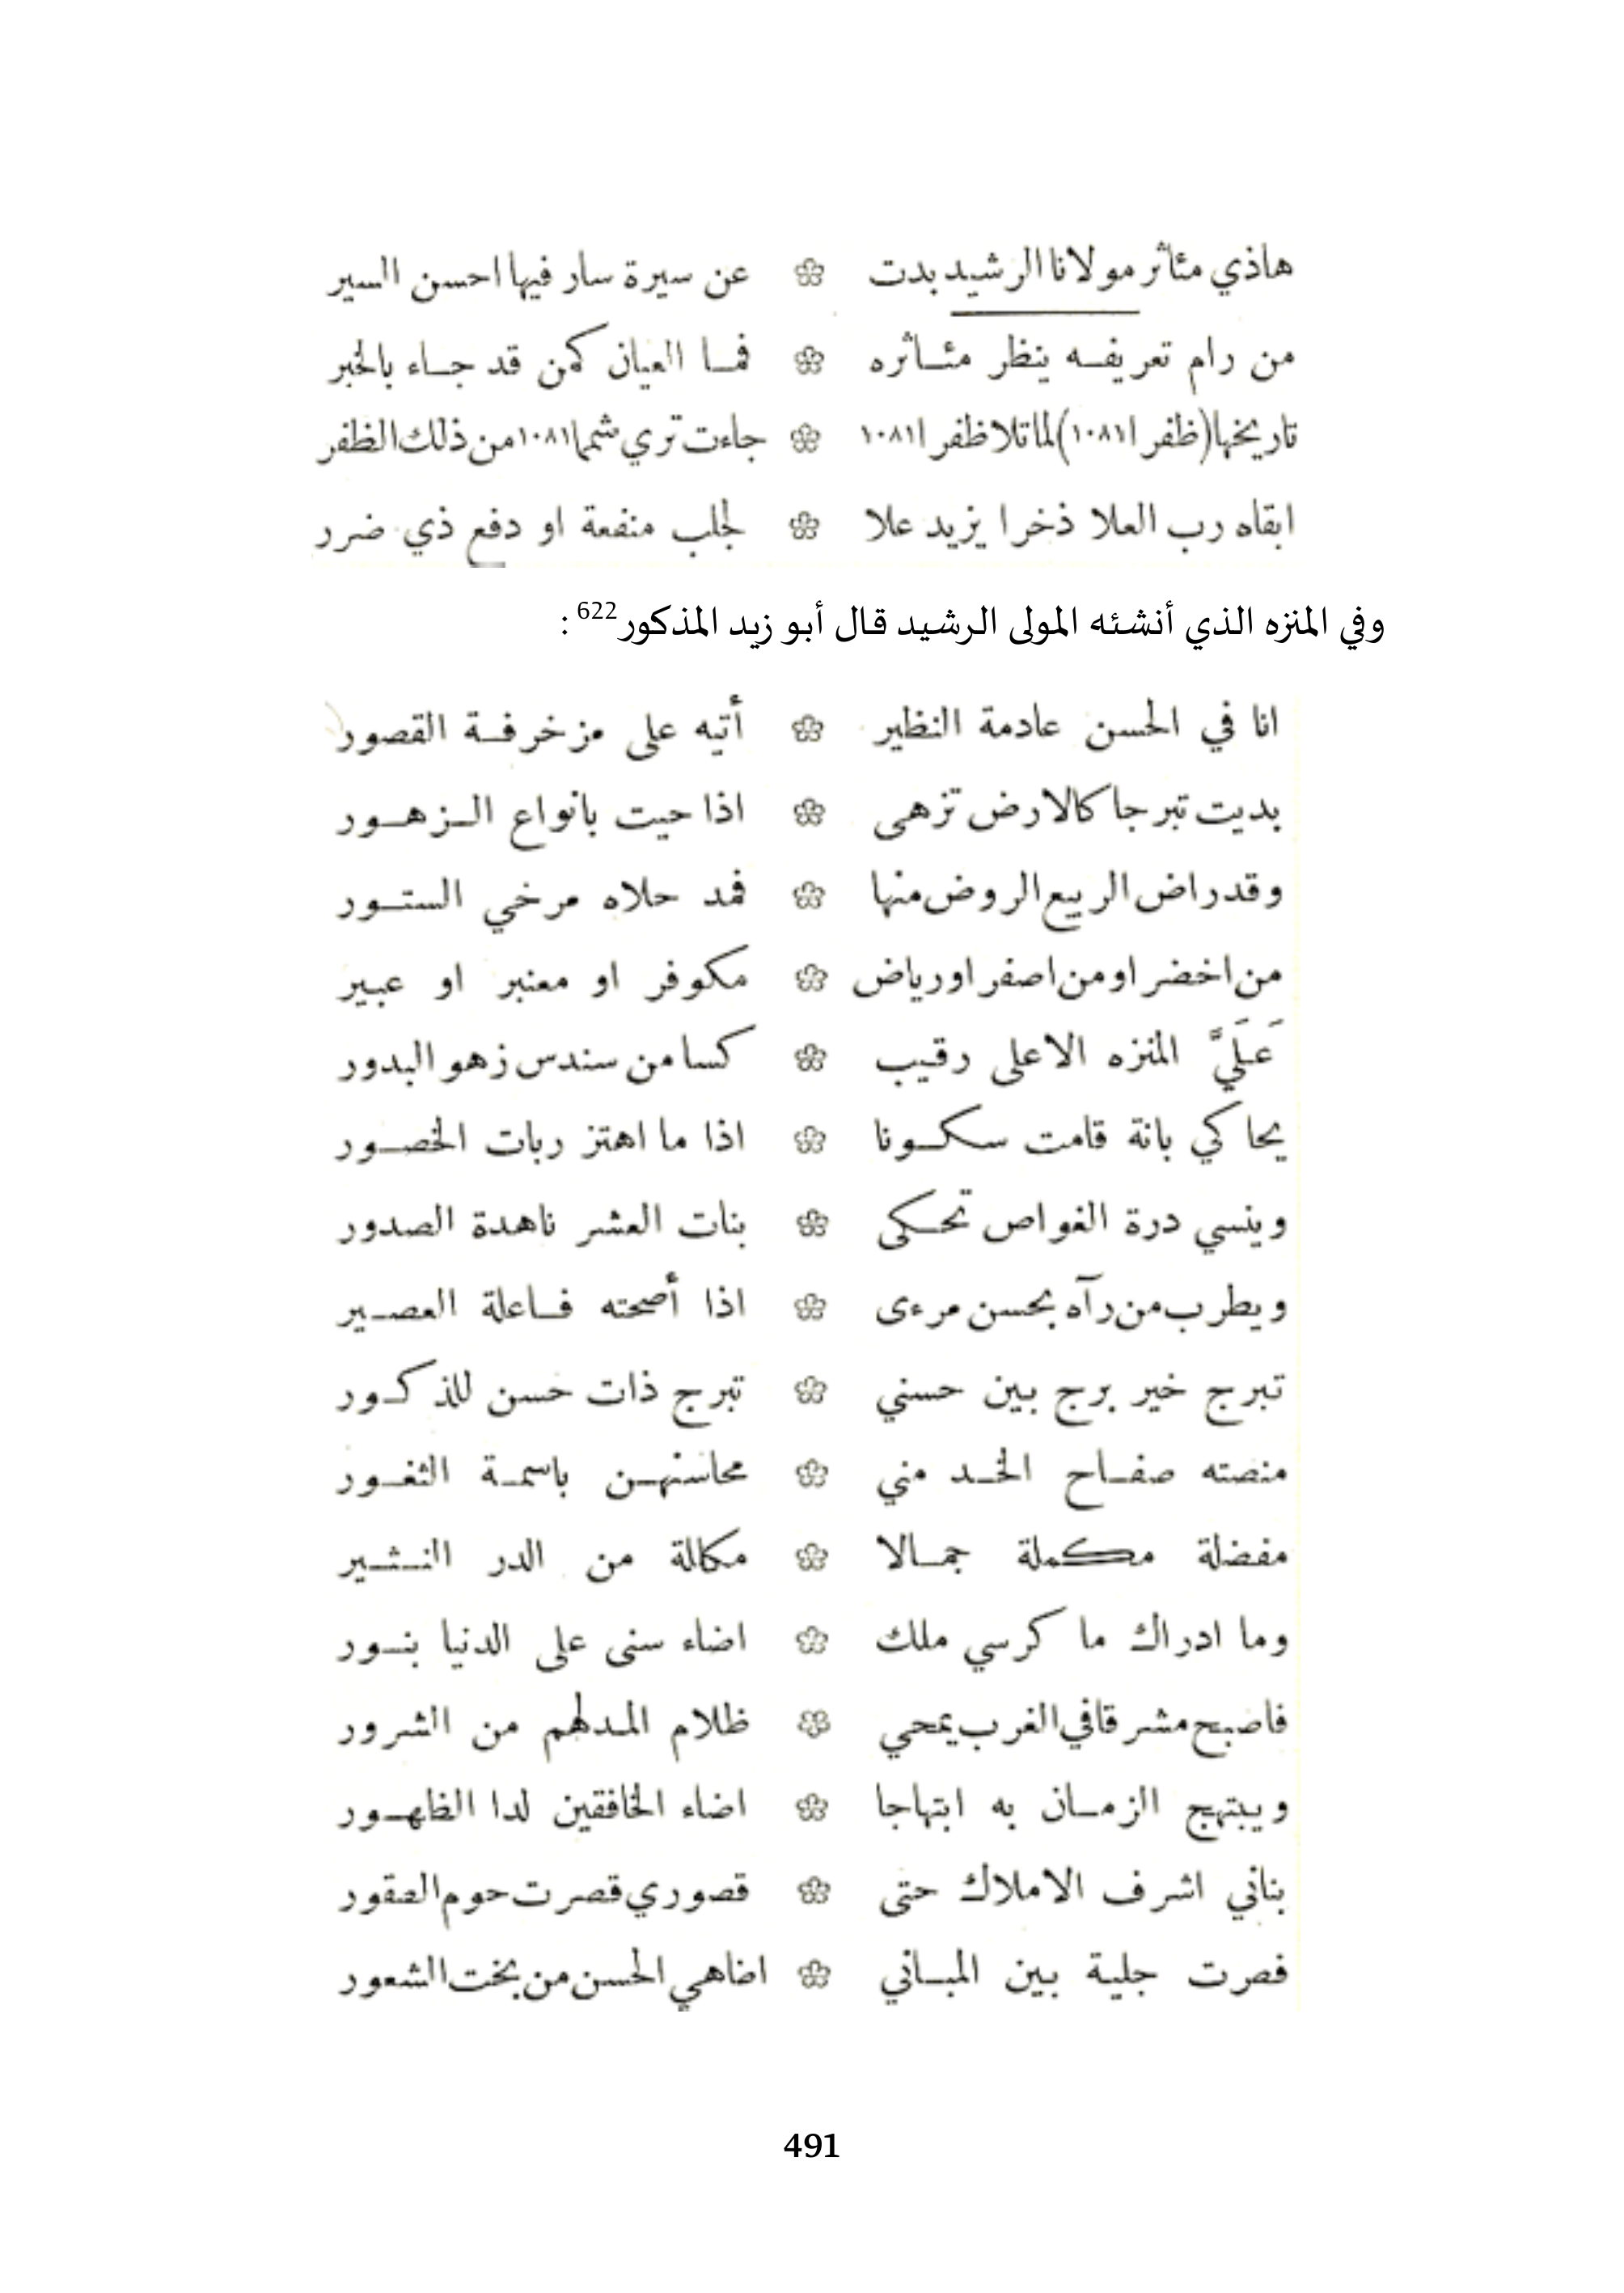 هاذي مئاثر مولانا الرشيد بدت ❀ عن سيرة سار فيها احسن السير
من رام تعريفه ينظر مئاثره ❀ فما العيان كمن قد جاء بالخبر
تاريخها (ظفر ا ١٠٨١) لما تلا ظفر ا ١٠٨١ ❀ جاءت تري شمما ١٠٨١ من ذلك الظفر
ابقاه رب العلا ذخرا يزيد علا ❀ لجلب منفعة او دفع ذي ضرر
وفي المنزه الذي أنشئه المولى الرشيد قال أبو زيد المذكور622 :
انا في الحسن عادمة النظير ❀ أتيه على مزخرفة القصور
بديت تبرجا كالارض تزهى ❀ اذا حيت بانواع الزهور
وقد راض الربيع الروض منها ❀ فمد حلاه مرخي الستور
من اخضر او من اصفر او رياض ❀ مكوفر او معنبر او عبير
عَلَيَّ المنزه الاعلى رقيب ❀ كسا من سندس زهو البدور
يحاكي بانة قامت سكونا ❀ اذا ما اهتز ربات الخصور
وينسي درة الغواص تحكى ❀ بنات العشر ناهدة الصدور
ويطرب من رآه بحسن مرءى ❀ اذا أصحته فاعلة العصير
تبرج خير برج بين حسني ❀ تبرج ذات حسن للذكور
منصته صفاح الخد مني ❀ محاسنهن باسمة الثغور
مفضلة مكملة جمالا ❀ مكالة من الدر النثير
وما ادراك ما كرسي ملك ❀ اضاء سنى على الدنيا بنور
فاصبح مشرقا في الغرب يمحي ❀ ظلام المدلهم من الشرور
ويبتهج الزمان به ابتهاجا ❀ اضاء الخافقين لدا الظهور
بناني اشرف الاملاك حتى ❀ قصوري قصرت حوم الصقور
فصرت جلية بين المباني ❀ اضاهي الحسن من بخت الشعور
491